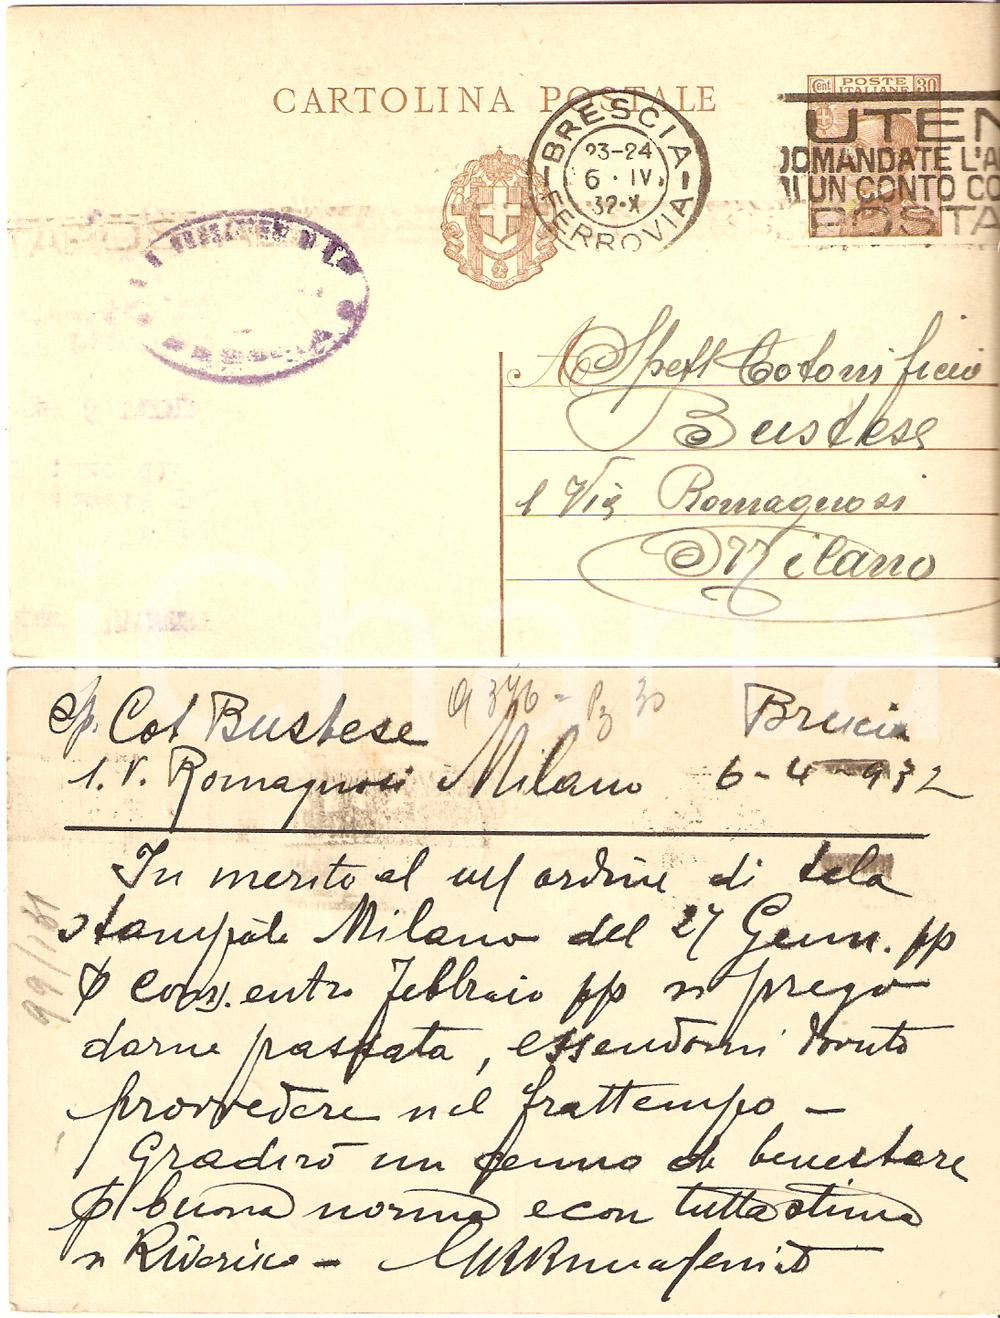 CARTOLINA POSTALE
BRESCIA
23-24
6 · IV
32·X
FERROVIA
Cent POSTE ITALIANE 30
UTEN
DOMANDATE L'A
DI UN CONTO CO
POSTA
A Spett Cotonificio
Bustese
1 Via Romagnosi
Milano
iCharta
Sp. Cot Bustese
Brescia
1. V. Romagnosi Milano 6-4-932
99/131
In merito al ordine di tela
stampata Milano del 27 Genn. pp
cons. entro Febbraio pp vi prego
darne passata, essendomi dovuto
provvedere nel frattempo –
Gradirò un cenno di benestare
buona norma e con tutta stima
vi Riverisco –